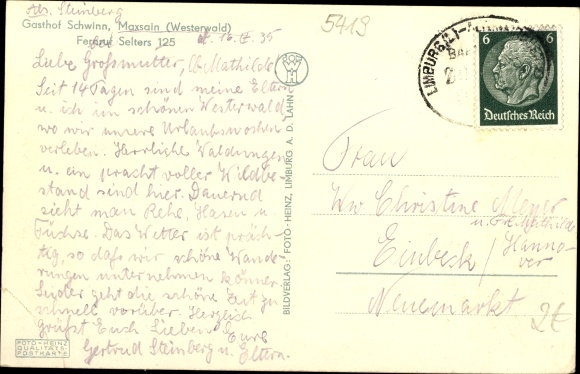 Abs. Steinberg
Gasthof Schwinn, Maxsain (Westerwald)
Fernruf Selters 125
d. 16. 35
Liebe Grossmutter, lb. Mathilde
Seit 14 Tagen sind meine Eltern
u. ich im schönen Westerwald
wo wir unsere Urlaubswochen
verleben. Herrliche Waldungen
u. ein pracht voller Wildbe-
stand sind hier. Dauernd
sieht man Rehe, Hasen u.
Füchse. Das Wetter ist präch-
tig, so dass wir schöne Wande-
rungen unternehmen können.
Leider geht die schöne Zeit zu
schnell vorüber. Herzlich
grüßt Euch Lieben Eure
Gertrud Steinberg u. Eltern.
FOTO-HEINZ
QUALITÄTS-
POSTKARTE
BILDVERLAG: FOTO-HEINZ, LIMBURG A. D. LAHN
5419
LIMBURG
6 6
Deutsches Reich
Frau
Ww Christine Meyer
u. Frl. Mathilde
Einbeck / Hanno-
ver
Neuemarkt
2€